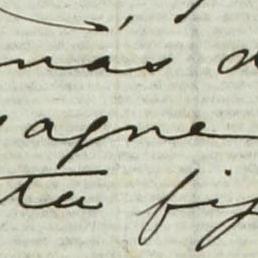 más d
agne
ta fij